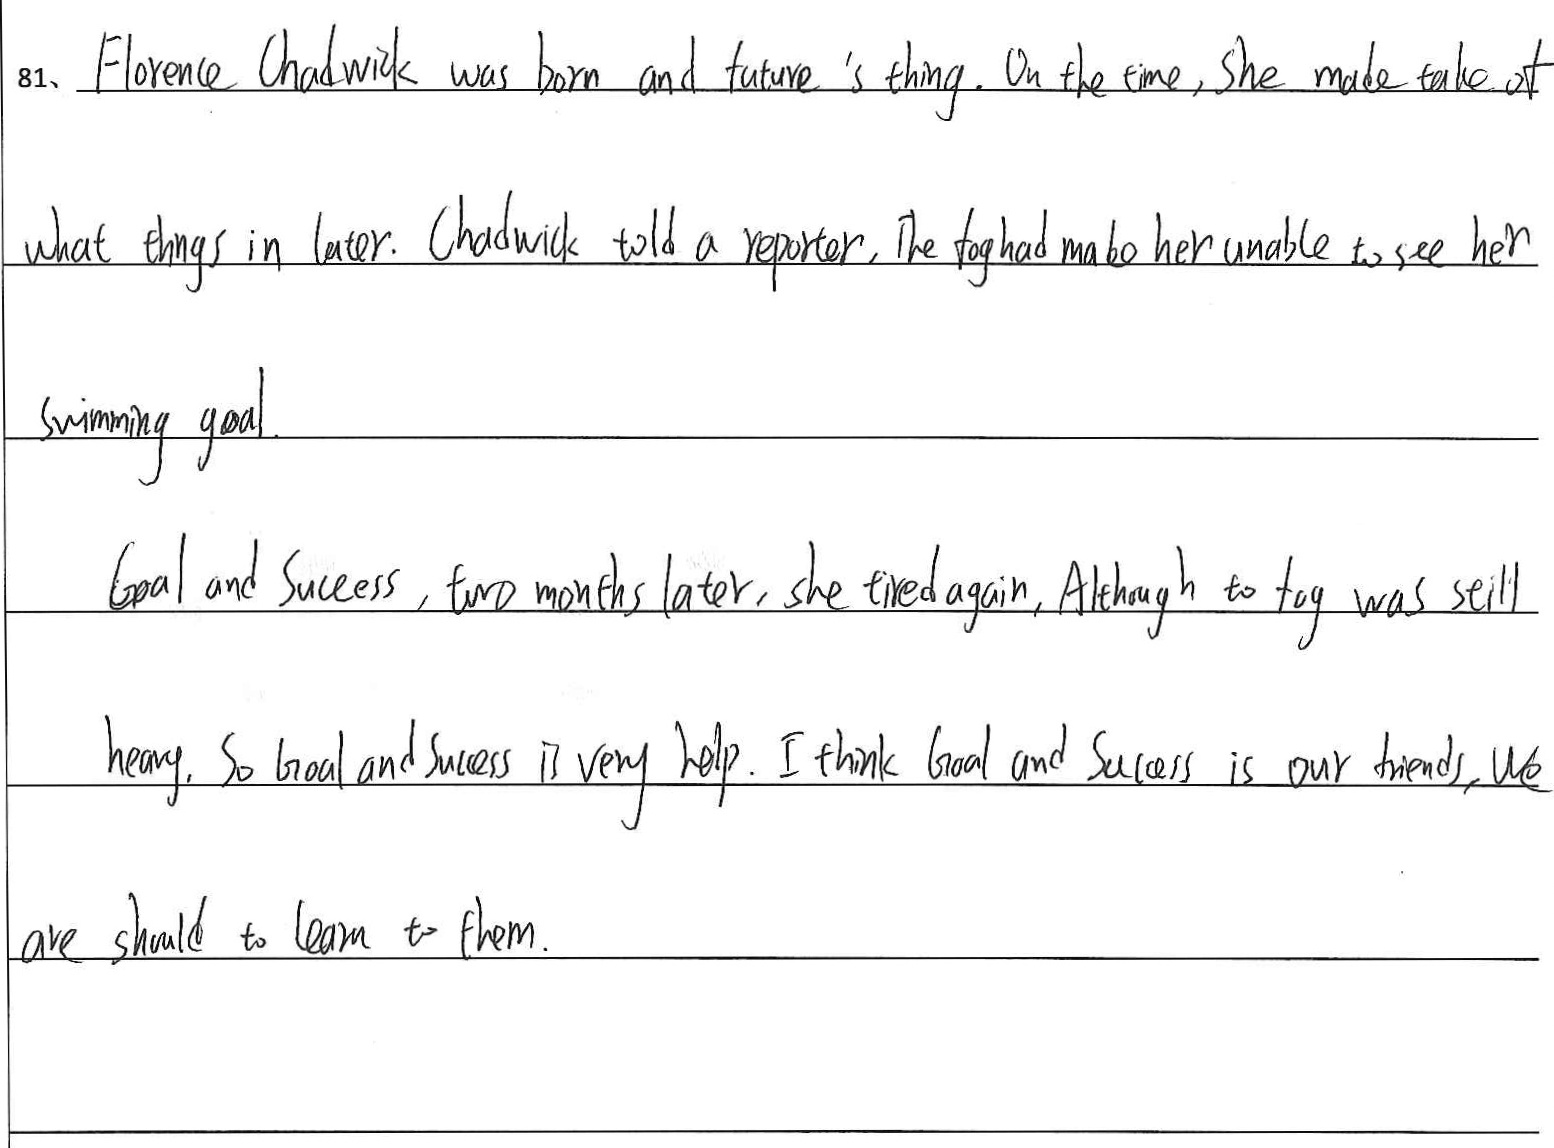 81、 Florence Chadwick was born and future 's thing. On the time, She made take of
what thngs in later. Chadwick told a reporter, The fog had mabo her unable to see her
swimming goal.
Goal and Success, two months later, she tired again, Although to fog was seill
heavy. So Goal and Success is very help. I think Goal and Success is our friends, We
are should to learn to them.